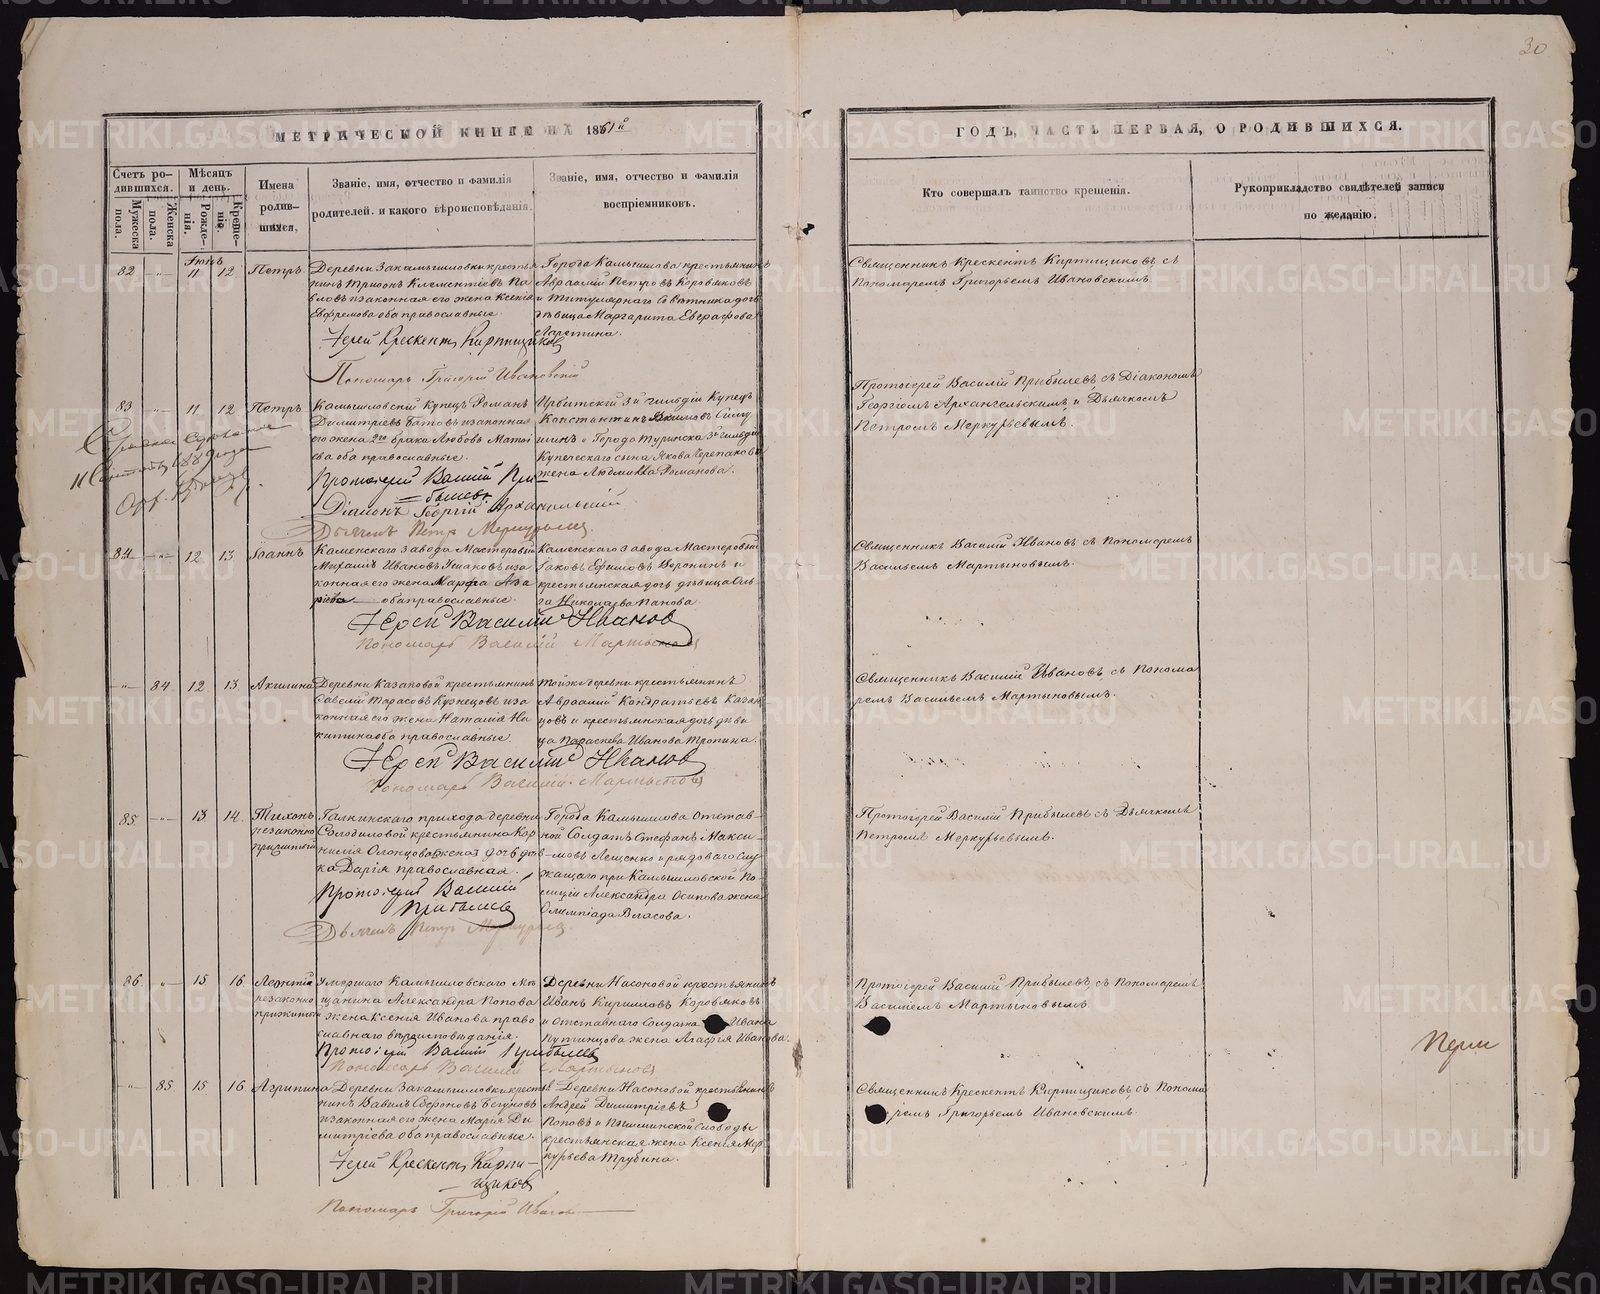 30
МЕТРИЧЕСКОЙ КНИГИ НА 1861й
ГОДЪ, ЧАСТЬ ПЕРВАЯ, О РОДИВШИХСЯ.
Счетъ ро-
дившихся.
Мужеска
пола.
Женска
пола.
Мѣсяцъ
и день.
Рожде-
нія.
Креще-
нія.
Имена
родив-
шихся.
Званіе, имя, отчество и фамилія
родителей. и какого вѣроисповѣданія.
Званіе, имя, отчество и фамилія
воспріемниковъ.
Кто совершалъ таинство крещенія.
Рукоприкладство свидѣтелей записи
по желанію.
Іюнь
82 -"- 11 12 Петръ
Деревни Закамышловки крестья
нинъ Трифонъ Климентіевъ Па
вловъ изаконная его жена Ксенія
Ефремова оба православные.
Іерей Крескентъ Киртициковъ
Пономарь Григорій Ивановскій
Города Камышлова крестьянинъ
Авраамій Петровъ Коровяковъ
и Титулярнаго Совѣтника дочь
дѣвица Маргарита Еверафова
Священникъ Крескентъ Киртициковъ съ
Пономаремъ Григорьемъ Ивановскимъ.
83 -"- 11 12 Петръ
Камышловскій Купецъ Романъ
Димитріевъ изаконная
его жена 2го брака Любовь Матѳі
ева оба православные.
Протоіерей Василій При-
былевъ
Діаконъ Георгій Архангельскій
Дьячекъ Петръ Меркурьевъ
Ирбитскій 3й гильдіи Купецъ
Константинъ
шинъ и Города Туринска 3й гильдіи
Купеческаго сына Якова Черепанова
жена Людмилла Романова.
Протоіерей Василій Прибылевъ, съ Діакономъ
Георгіемъ Архангельскимъ и Дьячкомъ
Петромъ Меркурьевымъ.
84 -"- 12 13 Іоаннъ
Каменскаго завода Мастеровый
Михаилъ Ивановъ иза
конная его жена Марфа Аза
ріева оба православные.
Іерей Василій Ивановъ
Пономарь Василій Мартыновъ
Каменскаго завода Мастеровый
Іаковъ Ефимовъ Воронинъ и
крестьянская дочь дѣвица Оль
га Николаева Панова.
Священникъ Василій Ивановъ съ Пономаремъ
Васильемъ Мартыновымъ.
-"- 84 12 13 Акилина
Деревни Казаковой крестьянинъ
Савелій Тарасовъ Кузнецовъ иза
конная его жена Наталія Ни
китина оба православные.
Іерей Василій Ивановъ
Пономарь Василій Мартыновъ
Тойже деревни крестьянинъ
Авраамій Кондратьевъ Казан
цовъ и крестьянская дочь дѣви
ца Параскева Иванова Тропина.
Священникъ Василій Ивановъ съ Понома
ремъ Васильемъ Мартыновымъ.
85 -"- 13 14 Тихонъ
незаконно
прижитый
Галкинскаго прихода деревни
Солодиловой крестьянина Кор
нилія дочь дѣв
ка Дарія православная.
Протоіерей Василій
Прибылевъ
Дьячекъ Петръ Меркурьевъ
Города Камышлова Отстав-
ной Солдатъ Стефанъ Макси-
мовъ Лещенко и рядоваго слу
жащаго при Камышловской По-
лиціи Александра Осипова жена
Олимпіада Власова.
Протоіерей Василій Прибылевъ съ Дьячкомъ
Петромъ Меркурьевымъ.
86 -"- 15 16 Леонтій
незаконно
прижитый
Умершаго Камышловскаго Мѣ
щанина Александра Попова
жена Ксенія Иванова право
славнаго вѣроисповѣданія.
Протоіерей Василій Прибылевъ
Пономарь Василій Мартыновъ
Деревни Насоновой крестьянинъ
Иванъ Кирилловъ Коровяковъ
и Отставнаго Солдата Ивана
Путинцова жена Агафія Иванова.
Протоіерей Василій Прибылевъ, съ Пономаремъ
Василіемъ Мартыновымъ
-"- 85 15 16 Агрипина
Деревни Закамышловки кресть
янинъ Вавилъ Бегуновъ
изаконная его жена Марія Ди
митріева оба православные.
Іерей Крескентъ Кирти-
циковъ
Пономарь Григорій
Деревни Насоновой крестьянинъ
Андрей Димитріевъ
Поповъ и Пышминской Слободы
крестьянская жена Ксенія Мер
курьева Трубина.
Священникъ Крескентъ Киртициковъ, съ Понома
ремъ Григорьемъ Ивановскимъ.